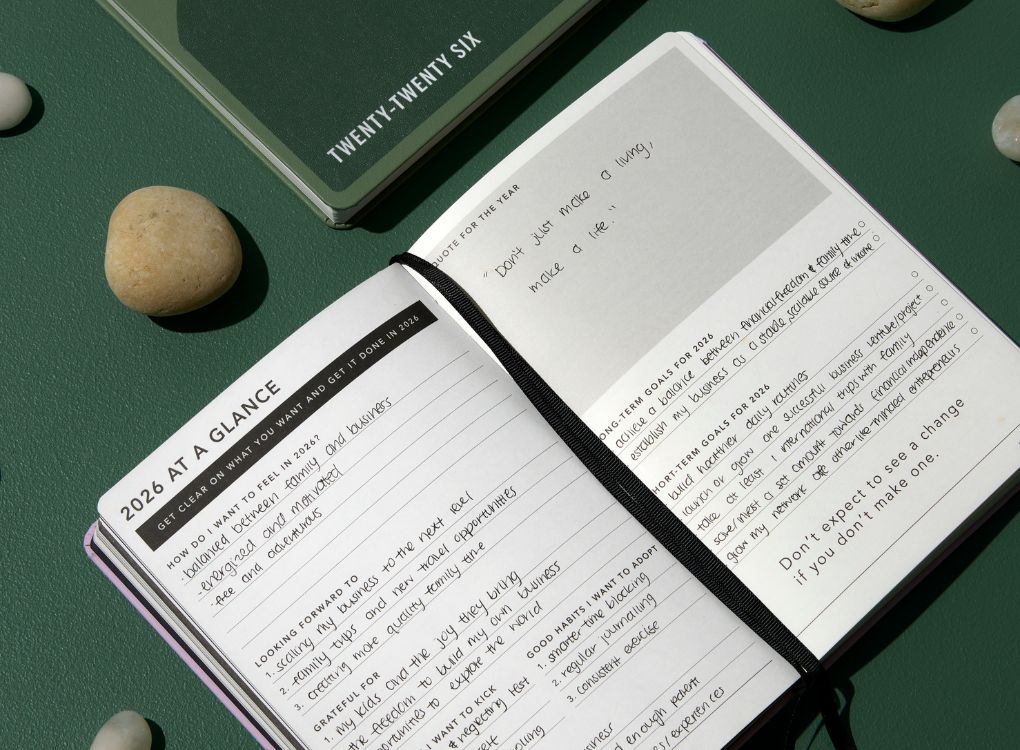 TWENTY-TWENTY SIX
2026 AT A GLANCE
GET CLEAR ON WHAT YOU WANT AND GET IT DONE IN 2026
HOW DO I WANT TO FEEL IN 2026?
· balanced between family and business
· energized and motivated
· free and adventurous
LOOKING FORWARD TO
1. scaling my business to the next level
2. family trips and new travel opportunities
3. creating more quality family time
GRATEFUL FOR
1. my kids and the joy they bring
the freedom to build my own business
to explore the world
I WANT TO KICK
& neglecting rest
GOOD HABITS I WANT TO ADOPT
1. smarter time blocking
2. regular journalling
3. consistent exercise
enough patient
QUOTE FOR THE YEAR
"Don't just make a living,
make a life."
LONG-TERM GOALS FOR 2026
achieve a balance between financial freedom & family time
establish my business as a stable, scalable source of income
SHORT-TERM GOALS FOR 2026
build healthier daily routines
launch or grow one successful business venture/project
take at least 1 international trips with family
save/invest a set amount towards financial independence
grow my network of other like-minded entrepreneurs
Don't expect to see a change
if you don't make one.